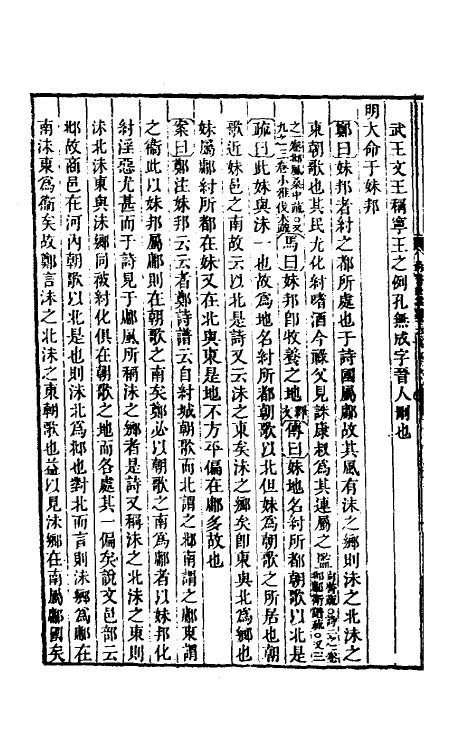 武王文王稱寧王之例孔無成字晉人刪也
明大命于妹邦
鄭曰妹邦者紂之都所處也于詩國屬鄘故其風有沬之鄉則沬之北沬之
東朝歌也其民尤化紂嗜酒今祿父見誅康叔爲其連屬之監
馬曰妹邦卽牧養之地釋文傳曰妹地名紂所都朝歌以北是
疏曰此妹與沬一也故爲地名紂所都朝歌以北但妹爲朝歌之所居也朝
歌近妹邑之南故云以北是詩又云沬之東矣沬之鄉矣卽東與北爲鄉也
妹屬鄘紂所都在妹又在北與東是地不方平偏在鄘多故也
案曰鄭注妹邦云云者鄭詩譜云自紂城朝歌而北謂之邶南謂之鄘東謂
之衞此以妹邦屬鄘則在朝歌之南矣鄭必以朝歌之南爲鄘者以妹邦化
紂淫惡尤甚而于詩見于鄘風所稱沬之鄉者是詩又稱沬之北沬之東則
沬北沬東與沬鄉同被紂化俱在朝歌之地而各處其一偏矣說文邑部云
邶故商邑在河內朝歌以北是也則沬北爲邶也對北而言則沬鄉爲鄘在
南沬東爲衞矣故鄭言沬之北沬之東朝歌也益以見沬鄉在南屬鄘國矣